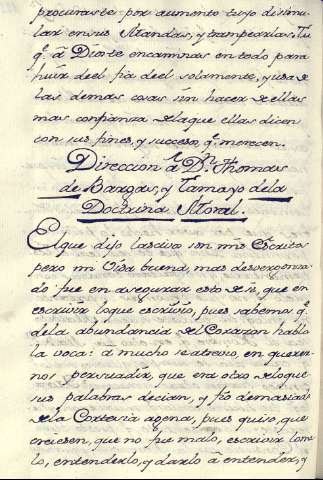 procuraste por aumento tuyo disimu-
lar en sus Mandas, y trampearlas, Tu
q.e à Dios te encaminas en todo para
huir de el fia de el solamente, y usa de
las demas cosas sin hacer de ellas
mas confianza de la que ellas dicen
con sus fines, y sucesos q.e merecen.
Direccion a D.n Thomas
de Bargas, y Tamayo de la
Doctrina Moral.
El que dijo lascivos son mis Escritos
pero mi Vida buena, mas desvergonza-
do fue en asegurar esto de si, que en
escrivir lo que escrivio, pues sabemos q.e
de la abundancia del Corazon habla
la voca: à mucho se atrevio, en querer-
nos persuadir, que era otro de lo que
sus palabras decian, y fio demasiado
de la Cortesia agena, pues quiso, que
creiesen, que no fue malo, escrivir lo ma-
lo, entenderlo, y darlo à entender, y